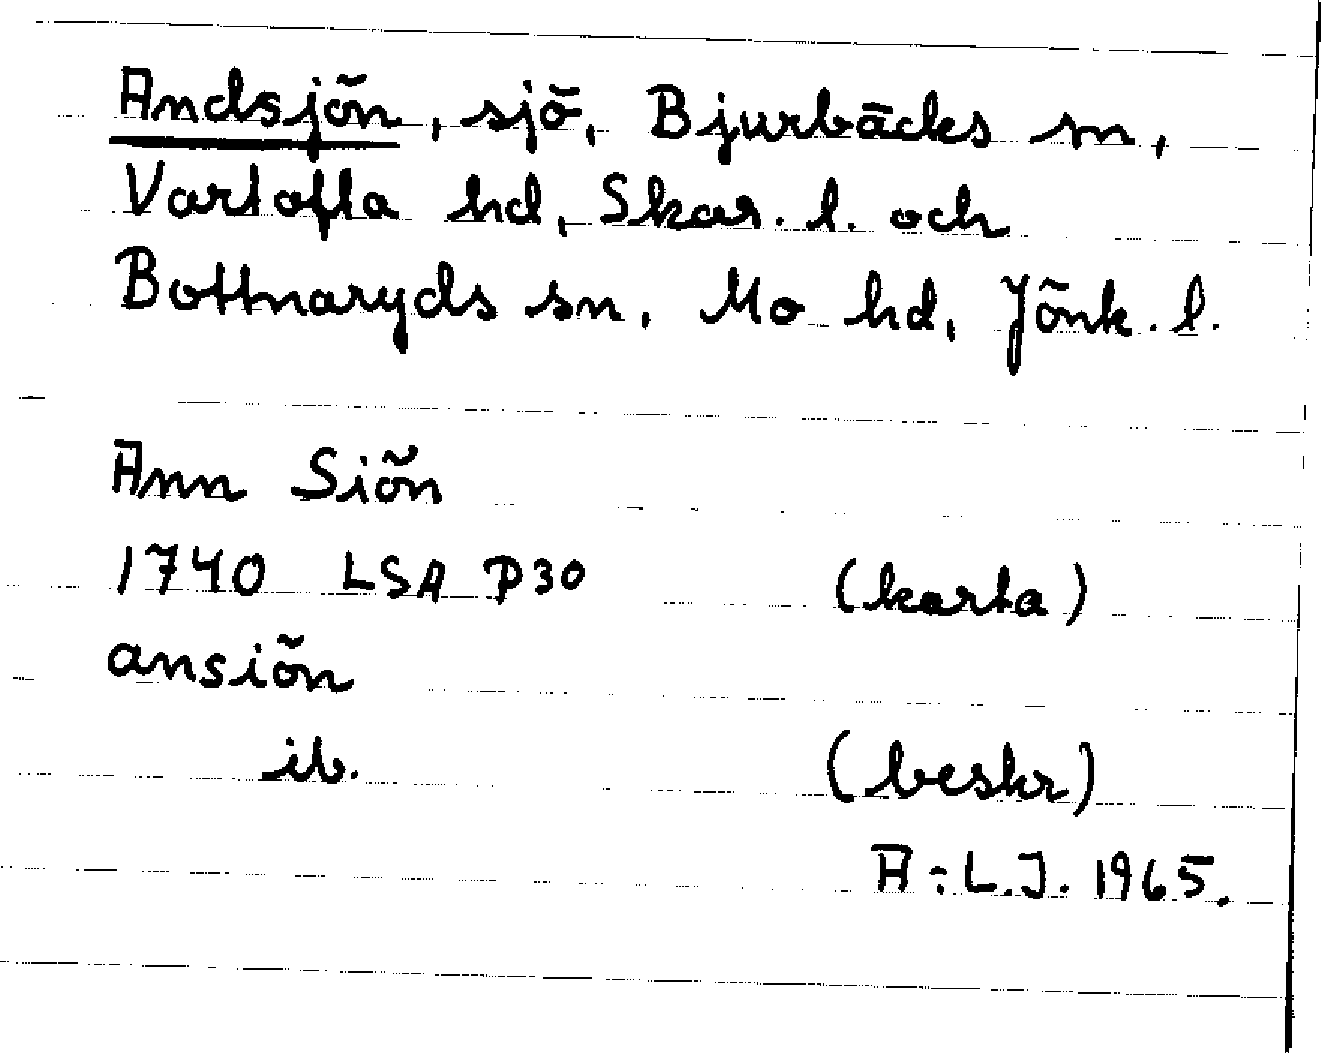 Andsjön, sjö, Bjurbäcks sn,
Vartofta hd, Skar. l. och
Bottnaryds sn, Mo hd, Jönk. l.
Ann Siön
1740 LSA P30 (karta)
ansiön
ib. (beskr)
A-L.J. 1965.